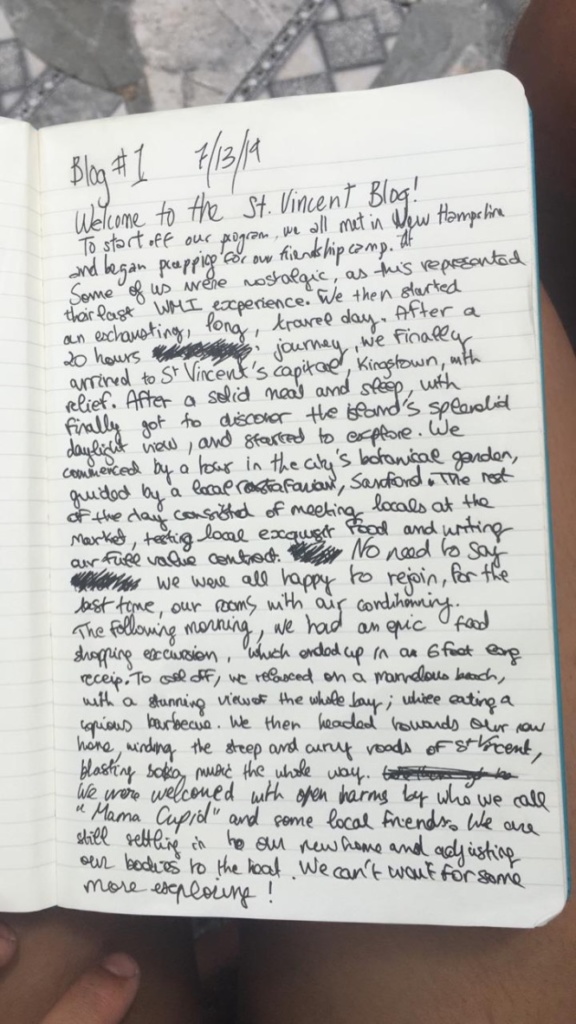 Blog #1 7/13/19
Welcome to the St. Vincent Blog!
To start off our program, we all met in New Hampshire
and began prepping for our friendship camp. At
Some of us were nostalgic, as this represented
their last WMI experience. We then started
an exhausting, long, travel day. After a
20 hours journey, we finally
arrived to St Vincent's capital, Kingstown, with
relief. After a solid meal and sleep, with
finally got to discover the island's splendid
daylight view, and started to explore. We
commenced by a tour in the city's botanical garden,
guided by a local rastafarian, Sandford. The rest
of the day consisted of meeting locals at the
market, testing local exquisit food and writing
our full value contract. No need to say
we were all happy to rejoin, for the
last time, our rooms with air conditionning.
The following morning, we had an epic food
shopping excursion, which ended up in an 6 foot long
receip. To cool off, we relaxed on a marvelous beach,
with a stunning view of the whole bay; while eating a
copious barbecue. We then headed towards our new
home, winding the steep and curvy roads of St Vincent,
blasting soka music the whole way.
We were welcomed with open harms by who we call
"Mama Cupid" and some local friends. We are
still settling in to our new home and adjusting
our bodies to the heat. We can't wait for some
more exploring!